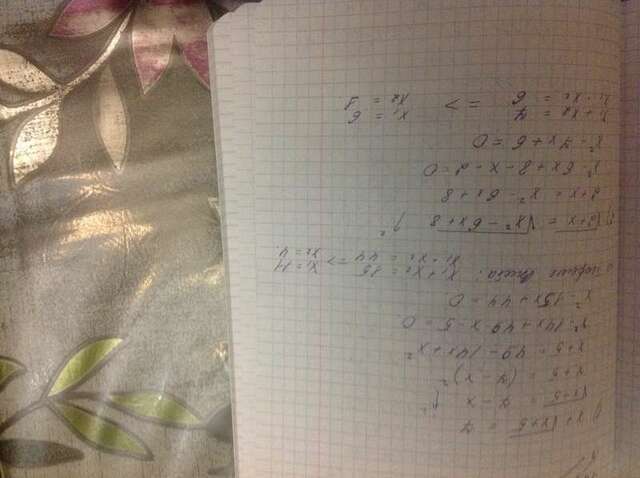 1) x + √x+5 = 7
√x+5 = 7 - x ↑²
x+5 = (7 - x)²
x+5 = 49 - 14x + x²
x² - 14x + 49 - x - 5 = 0
x² - 15x + 44 = 0
теореме Виета: x₁ + x₂ = 15
x₁ · x₂ = 44 => x₁ = 11
x₂ = 4
2) √2+x = √x² - 6x + 8 ↑²
2+x = x² - 6x + 8
x² - 6x + 8 - x - 2 = 0
x² - 7x + 6 = 0
x₁ + x₂ = 7
x₁ · x₂ = 6 => x₁ = 6
x₂ = 1.